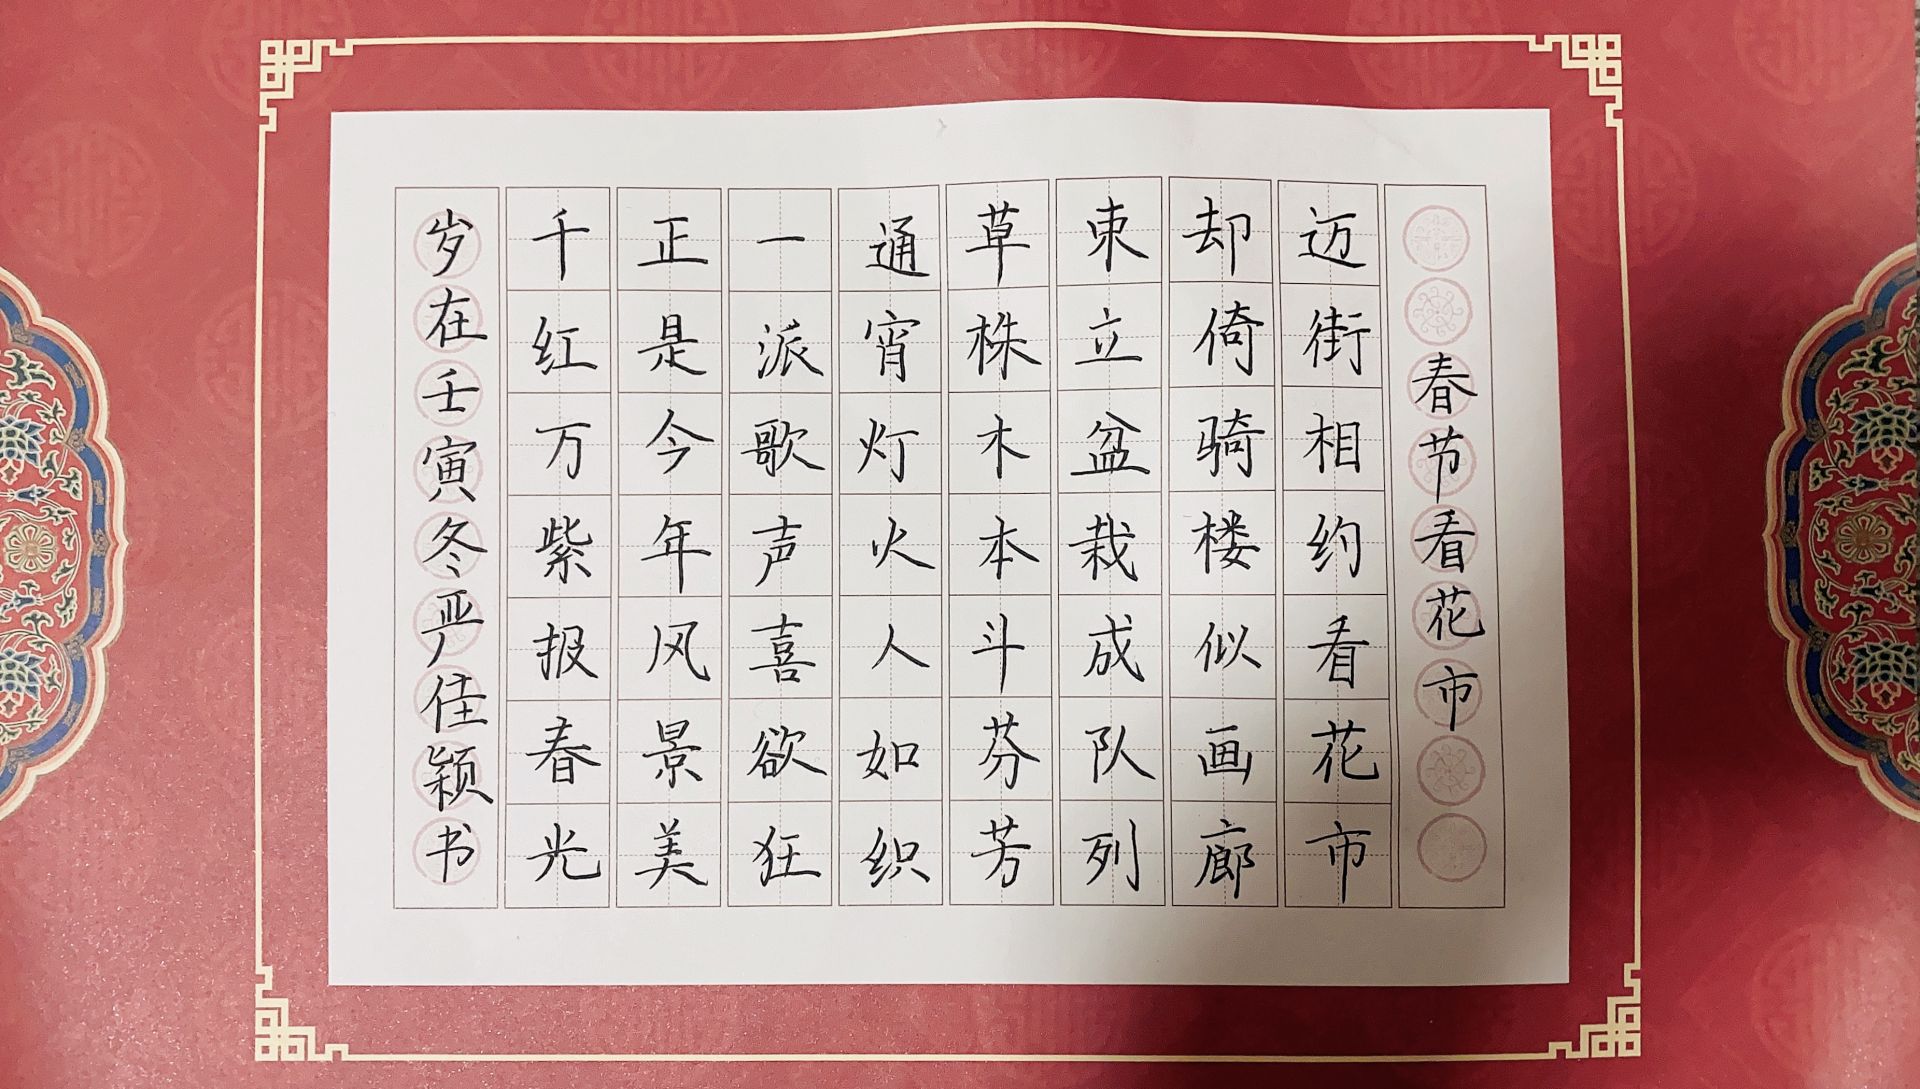 春节看花市
迈街相约看花市
却倚骑楼似画廊
束立盆栽成队列
草株木本斗芬芳
通宵灯火人如织
一派歌声喜欲狂
正是今年风景美
千红万紫报春光
岁在壬寅冬严佳颖书